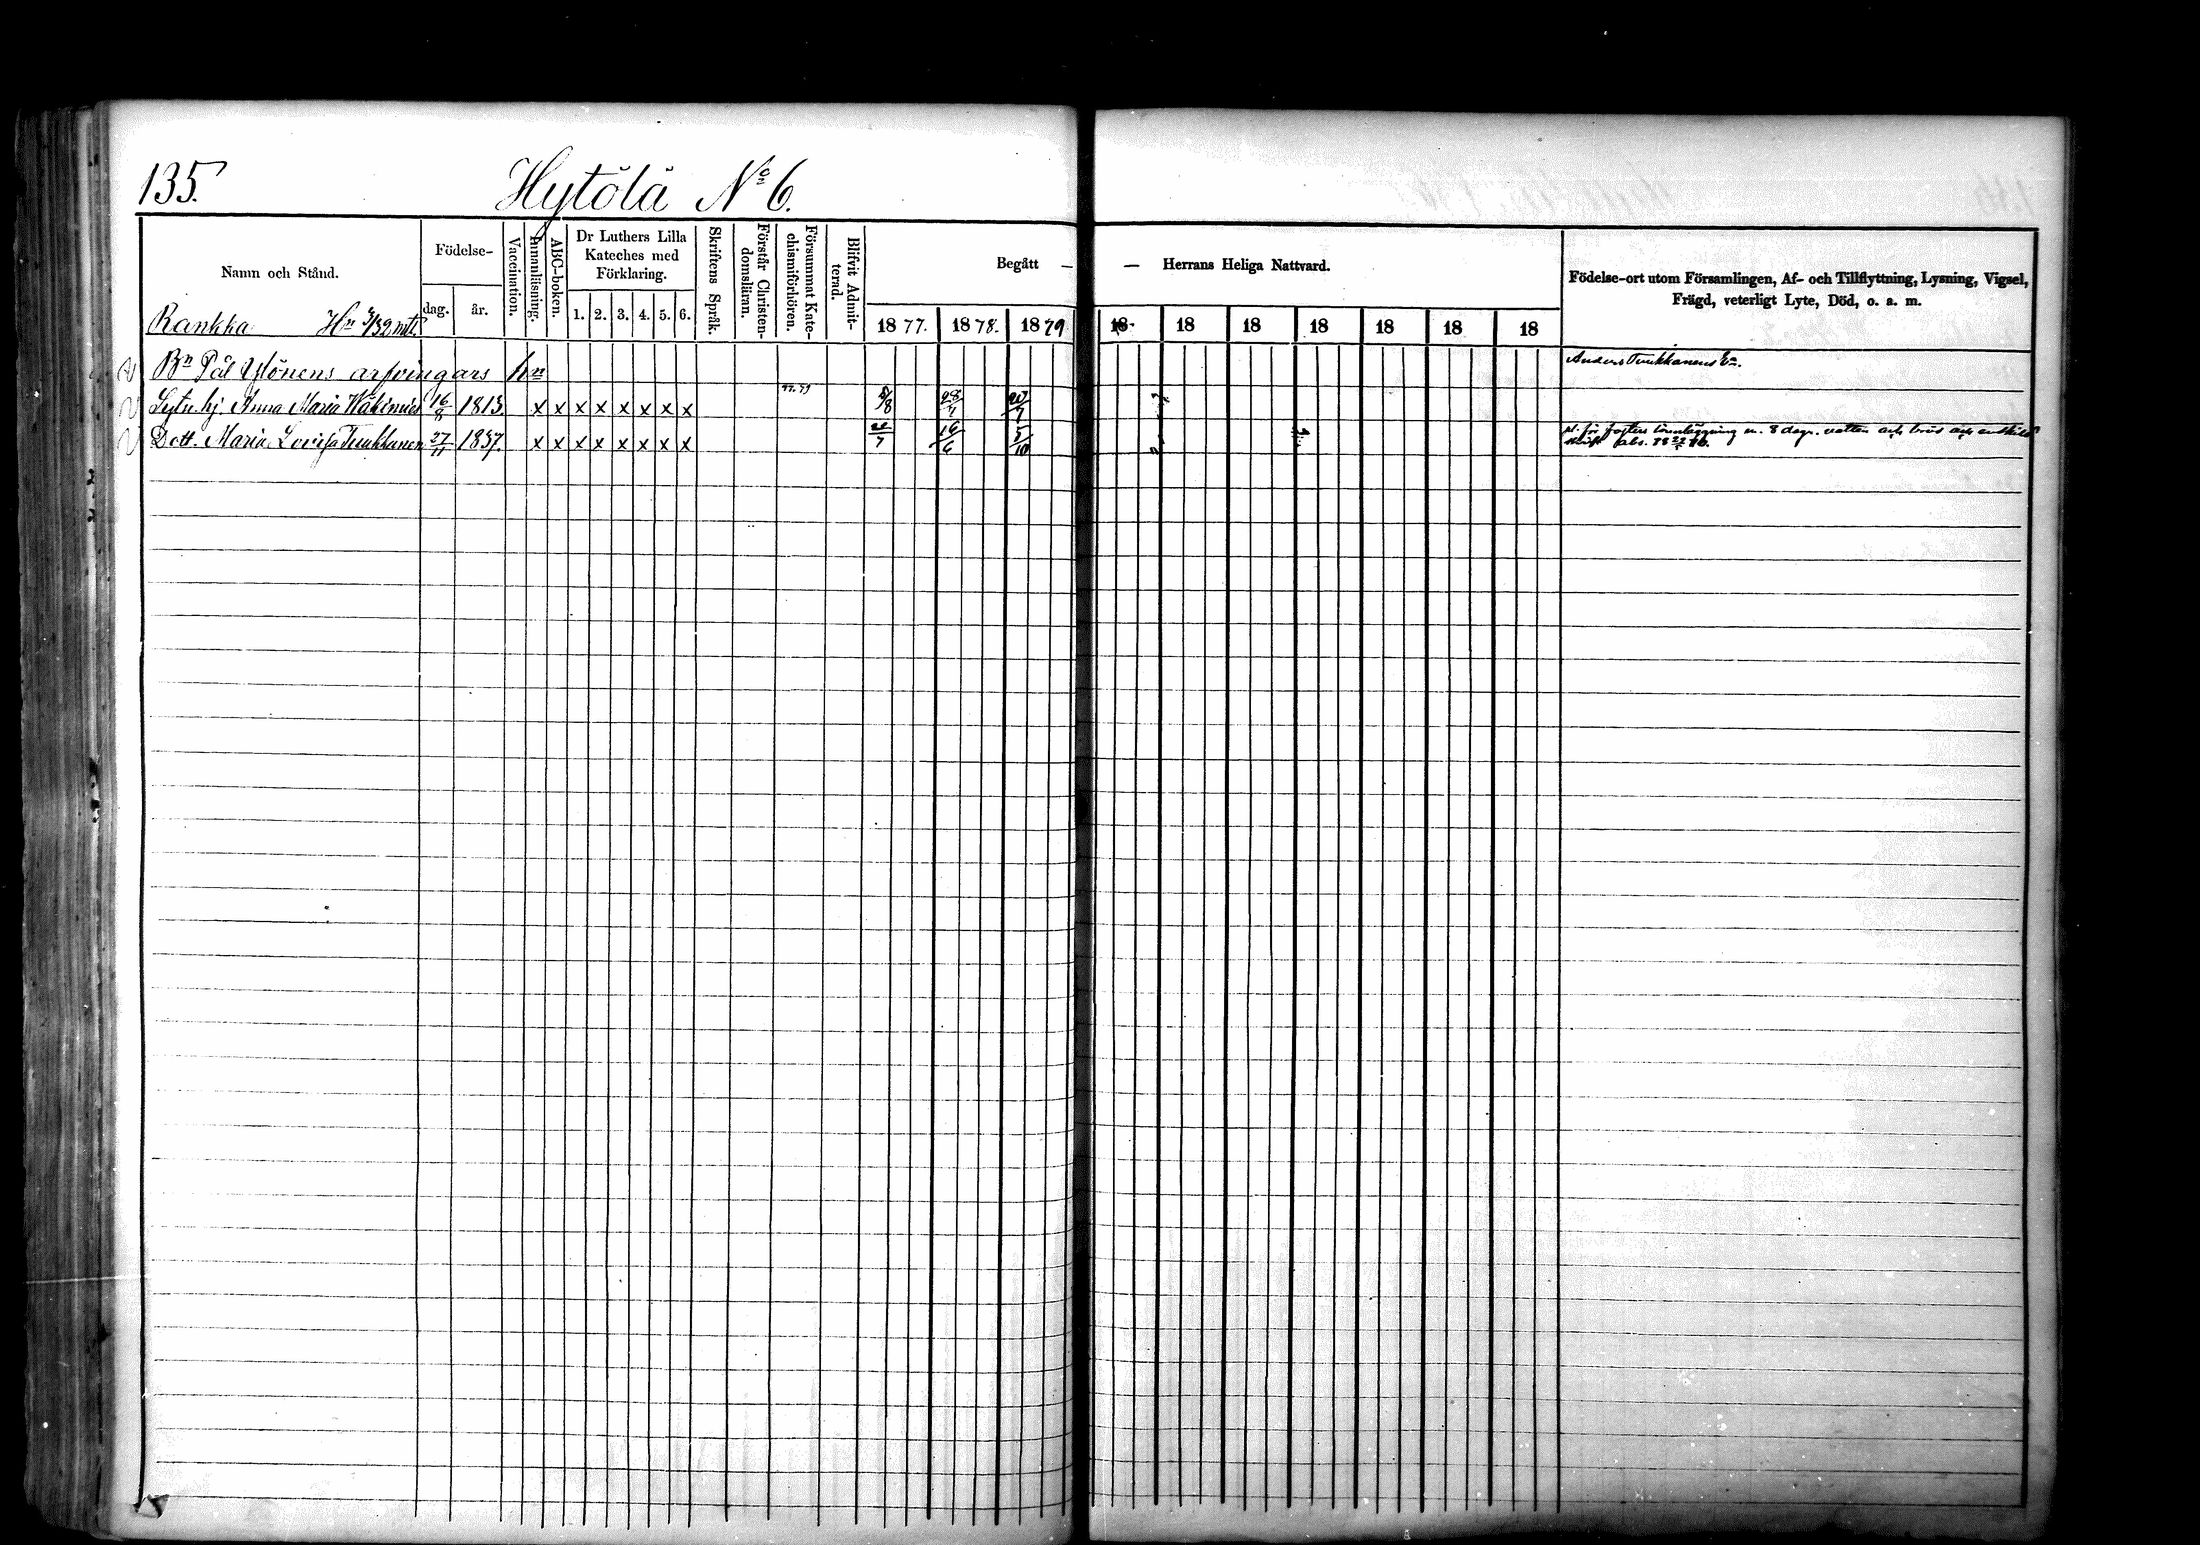 135.
Hytölä No 6.
Namn och Stånd.
Födelse-
dag.
år.
Vaccination.
Innanläsning.
ABC-boken.
Dr Luthers Lilla
Kateches med
Förklaring.
1. 2. 3. 4. 5. 6.
Skriftens Språk.
Förstår Christen-
domsläran.
Försummat Kate-
chismiförhören.
Blifvit Admit-
terad.
Begått — — Herrans Heliga Nattvard.
18 77. 18 78. 18 79 18 18 18 18 18 18 18
Födelse-ort utom Församlingen, Af- och Tillflyttning, Lysning, Vigsel,
Frägd, veterligt Lyte, Död, o. a. m.
Rankka Hn 3/32 mtl.
Bn Pål Ylönens arfvingars hn Anders Tuukkanens En.
Sytn. hj. Anna Maria 16/8 1813. x x x x x x x x 28/7 20/7
Dott. Maria Lovisa Tuukkanen 27/11 1837. x x x x x x x x 22/7 16/6 5/10 8 dagr. vatten och bröd och enskild
skrift abs.